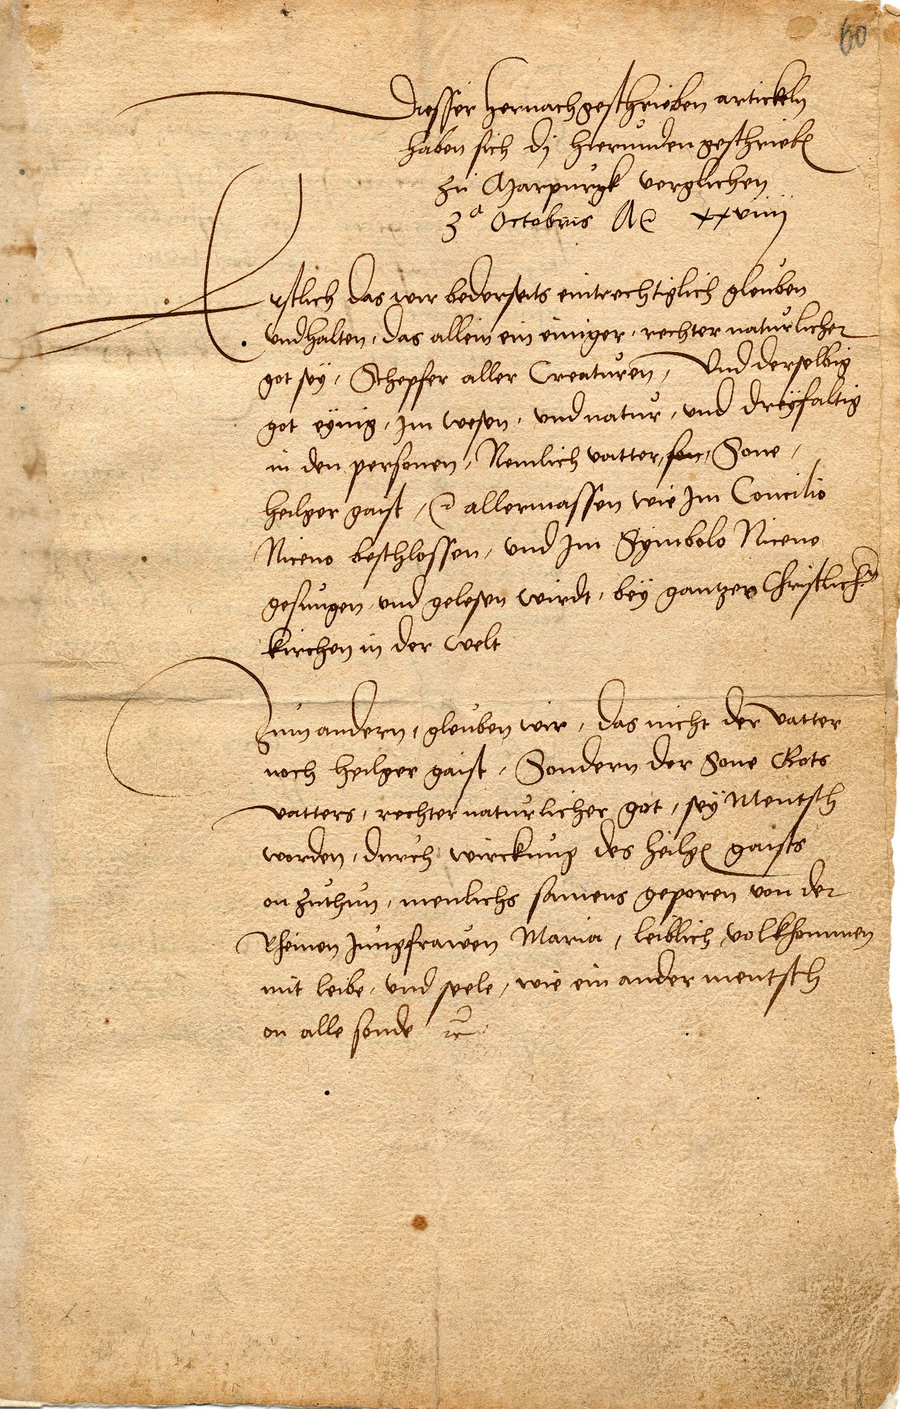 60
Diesser hernach geschrieben artickeln
haben sich dj hierunden geschrieb
zu Marpurgk verglichen
3ª Octobris xxviiij
Erstlich das wir bederseits eintrechtiglich gleuben
und halten, das allein ein einiger, rechter naturlicher
got seÿ, Schepfer aller Creaturen, Und derselbig
got eÿnig, im wesen, und natur, und dreÿfaltig
in den personen, Nemlich vatter, son, Sone,
heilger gaist, allermassen wie im Concilio
Niceno beschlossen, und im Sÿmbolo Niceno
gesungen, und gelesen wirdt, beÿ gantzer Christlicher
kirchen in der welt
Zum andern, gleuben wir, das nicht der vatter
noch heilger gaist, Sondern der Sone Gots
vatters, rechter naturlicher got, seÿ Mentsch
worden, durch wirckung des heilgen gaists
on zuthun, menlichs samens geporen von der
Rheinen Jungfrawen Maria, leiblich, volkhommen
mit leibe, und seele, wie ein ander mentsch
on alle sonde